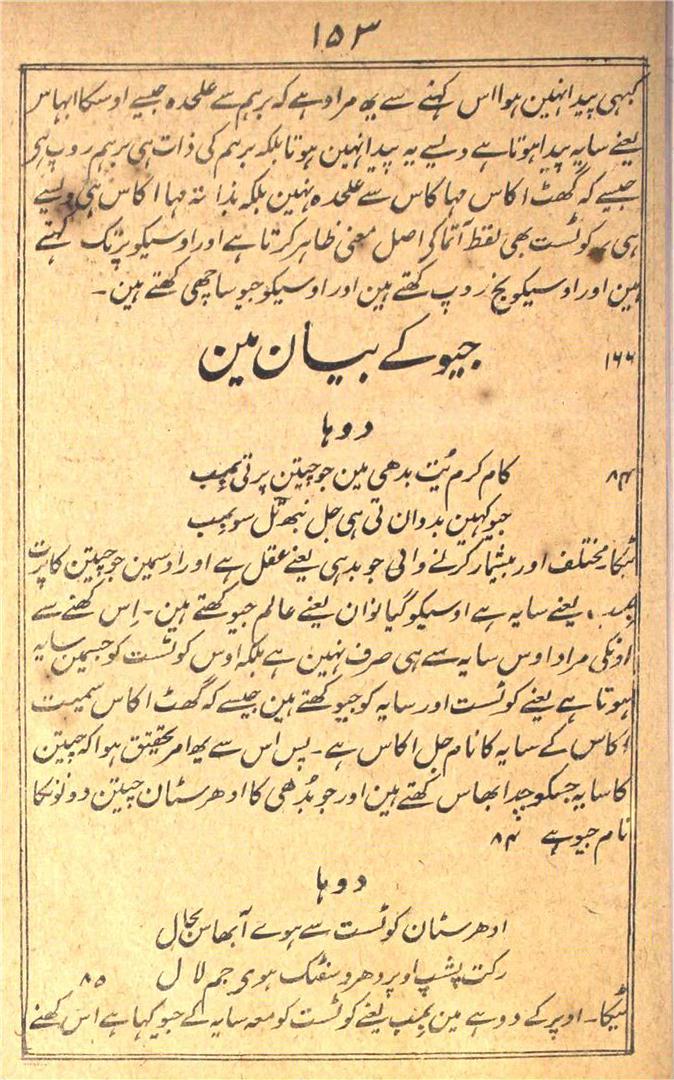 ۱۵۳
کبھی پیدا نہین ہوا اس کہنے سے یہ مراد ہے کہ برہم سے علحدہ جیسے اوسکا ابہاس
یعنے سایہ پیدا ہوتا ہے ویسے یہ پیدا نہین ہوتا بلکہ برہم کی ذات ہی برہم روپ ہی
جیسے کہ گھٹ اکاس مہا کاس سے علحدہ نہین بلکہ بذاتہ مہا اکاس ہی ویسے
ہی یہ کوٹست بھی لفظ آتما کی اصل معنی ظاہر کرتا ہے اور اوسیکو پرتک کہتے
ہین اور اوسیکو نج روپ کہتے ہین اور اوسیکو جیو ساچھی کہتے ہین ۔
۱۶۶ جیو کے بیان مین
دوہا
۸۴ کام کرم یُت بدھی مین جو چیتن پرتی بمب
جیو کہین بدوان تی ہی جل نبھ تُل سو بمب
ٹیکا مختلف اور بیشمار کرنے والی جو بدہی یعنے عقل ہے اور اوسمین جو چیتن کا پرت
بمب یعنے سایہ ہے اوسیکو گیانوان یعنے عالم جیو کہتے ہین ۔ اِس کہنے سے
اونکی مراد اوس سایہ سے ہی صرف نہین ہے بلکہ اوس کوٹست کو جسمین سایہ
ہوتا ہے یعنے کوٹست اور سایہ کو جیو کہتے ہین جیسے کہ گھٹ اکاس سمیت
اکاس کے سایہ کا نام جل اکاس ہے ۔ پس اس سے یہ امر تحقیق ہوا کہ چیتن
کا سایہ جسکو چدابھاس کہتے ہین اور جو بُدھی کا ادھرسٹان چیتن دونونکا
نام جیو ہے ۸۴
دوہا
ادھرسٹان کوٹست سے ہوے آبھاس بحال
رکت پشپ اوپر دھر و سفٹک ہوی جم لال ۸۵
ٹیکا ۔ اوپر کے دوہے مین بمب یعنے کوٹست کو معہ سایہ کے جیو کہا ہے اس کہنے